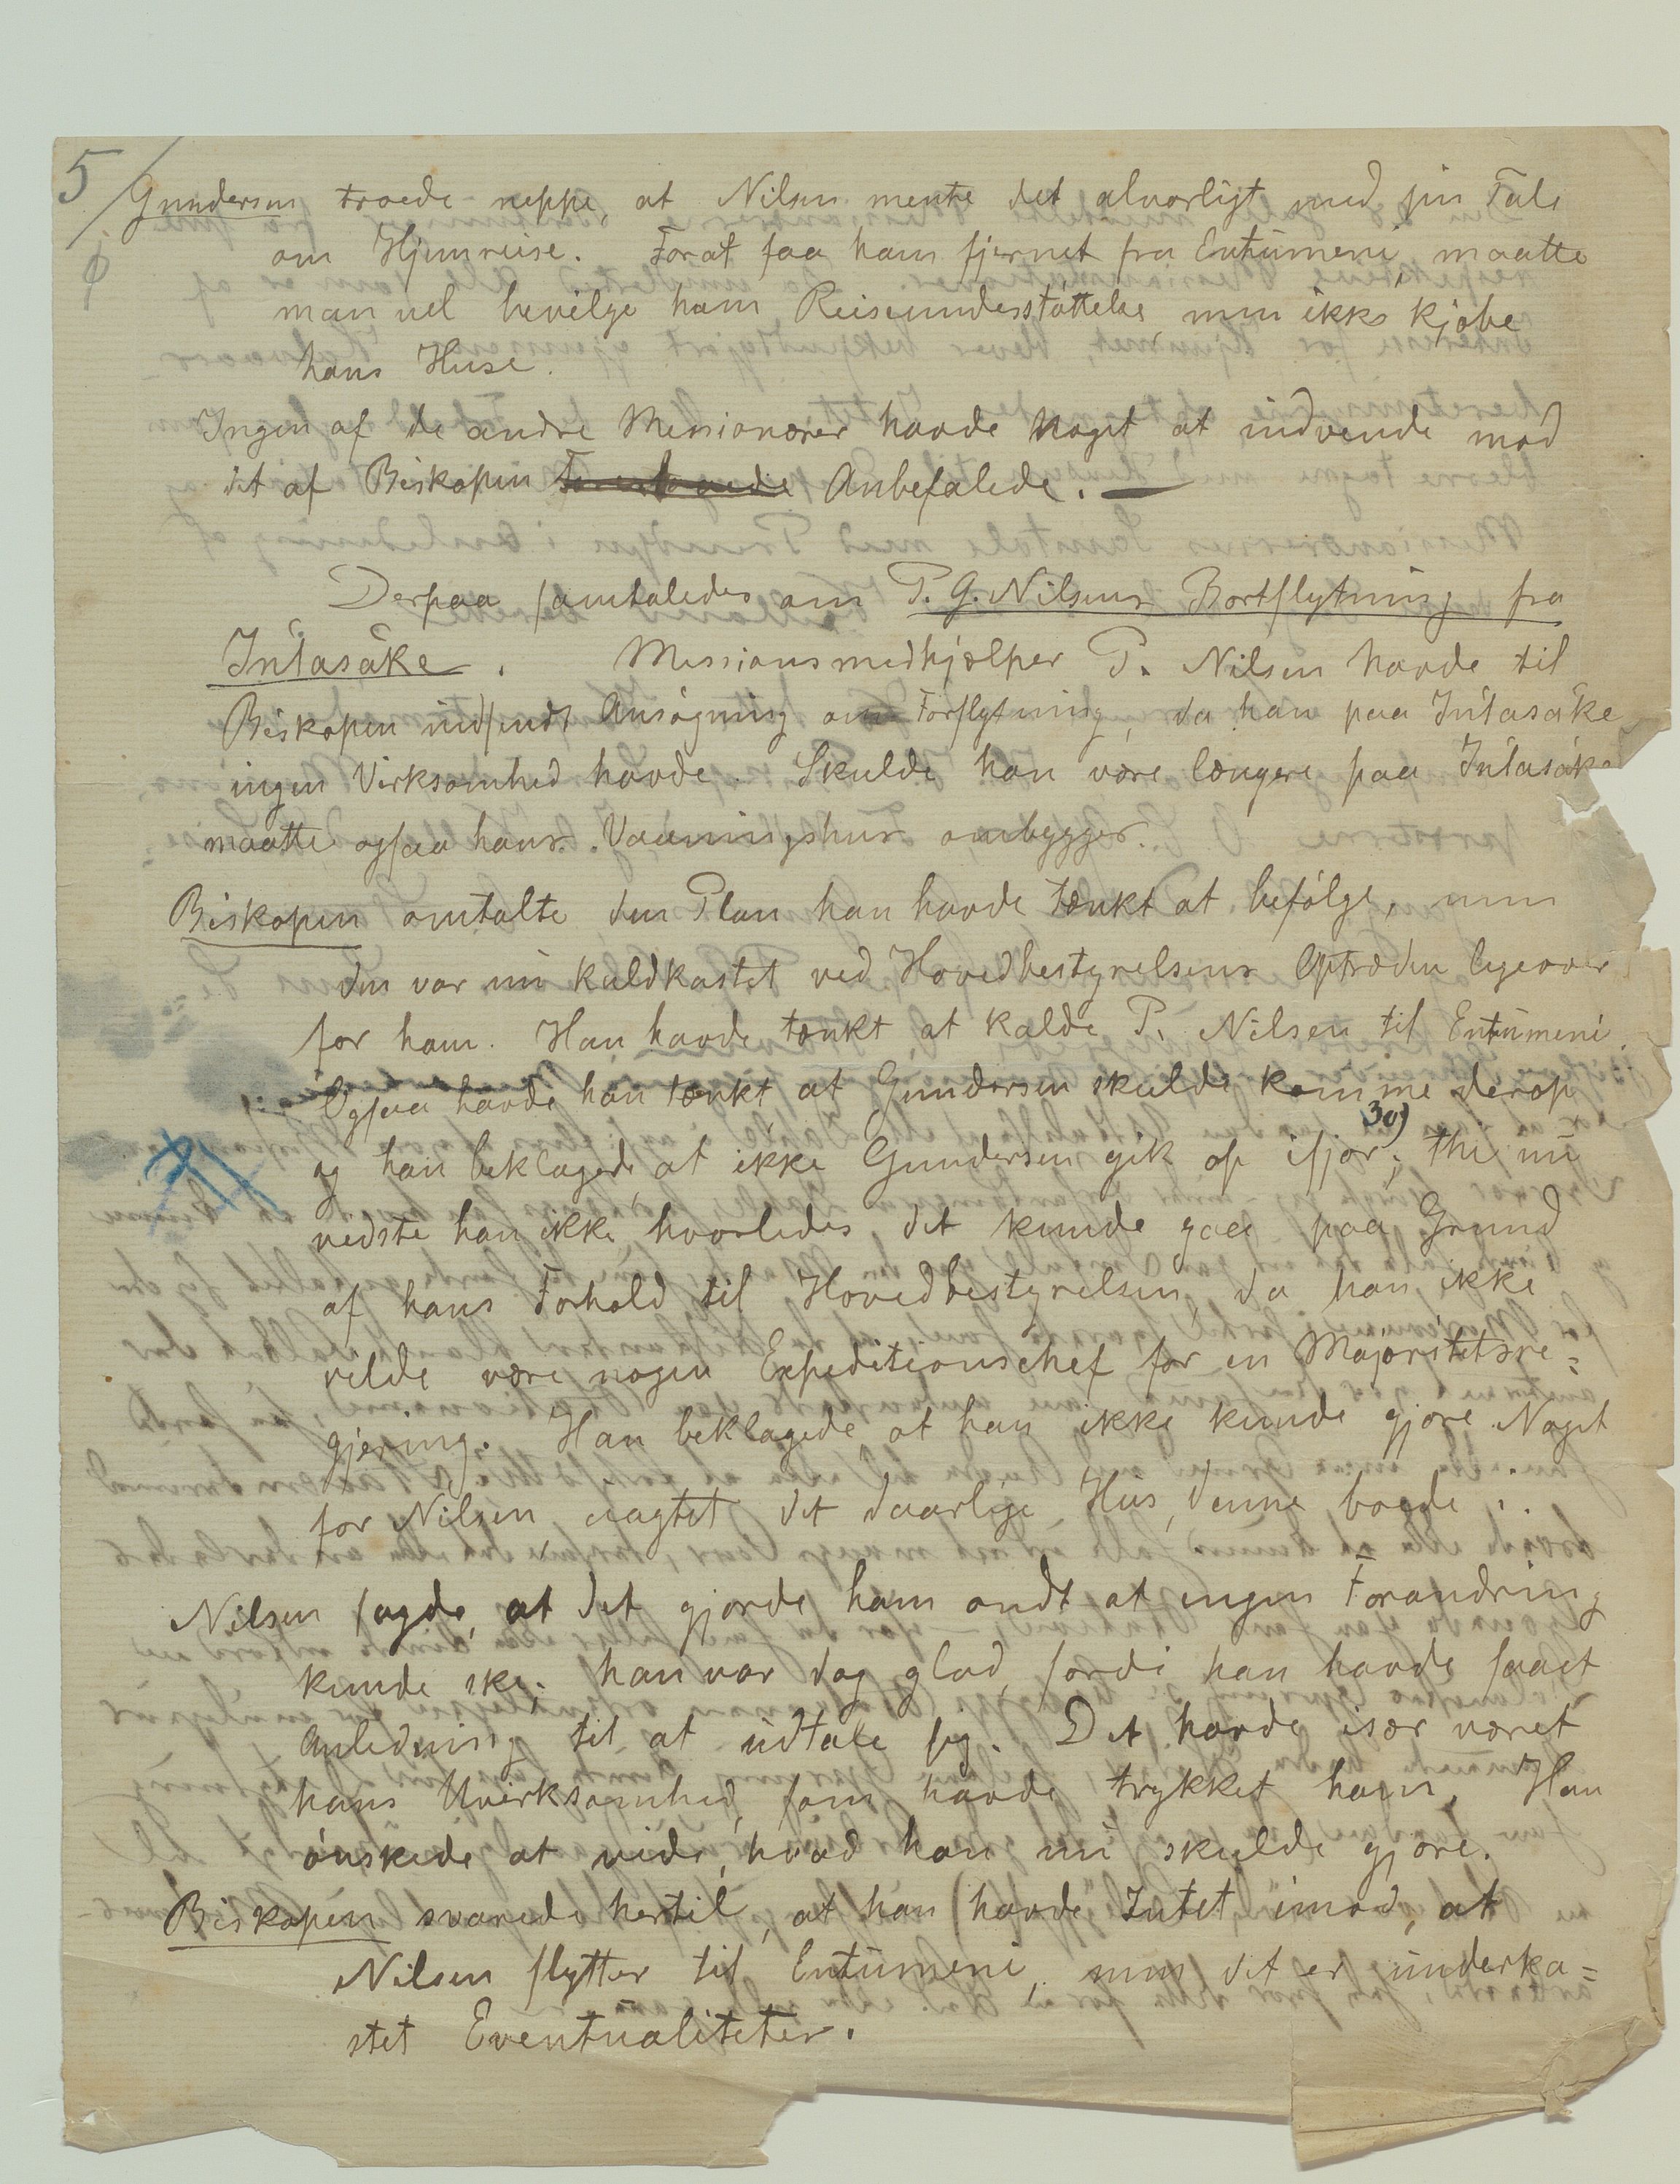 5/
Gundersen troede neppe, at Nilsen mente det alvorligt med sin Tale
om Hjemreise. Forat faa ham fjernet fra Entumeni, maatte
man vel bevilge ham Reiseunderstøttelse, men ikke kjøbe
hans Huse.
Ingen af de andre Missionærer havde Noget at indvende mod
det af Biskopen Foreslaaede Anbefalede. —
Derpaa samtaledes om P. G. Nilsens Bortflytning fra
Inlasáke. Missionsmedhjælper P. Nilsen havde til
Biskopen indsendt Ansøgning om Forflytning, da han paa Inlasáke
ingen Virksomhed havde. Skulde han være længere paa Inlasáke
maatte ogsaa hans Vaaningshus ombygges.
Biskopen omtalte den Plan han havde tænkt at befølge, men
den var nu kuldkastet ved Hovedbestyrelsens Optræden ligeover
for ham. Han havde tænkt at kalde P. Nilsen til Entumeni.
Ogsaa havde han tænkt at Gundersen skulde komme derop
og han beklagede at ikke Gundersen gik op ifjor; 30) thi nu
vidste han ikke, hvorledes det kunde gaa paa Grund
af hans Forhold til Hovedbestyrelsen, da han ikke
vilde være nogen Expeditionschef for en Majoritetsre=
gjering. Han beklagede at han ikke kunde gjøre Noget
for Nilsen uagtet det daarlige Hus, denne boede i.
Nilsen sagde, at det gjorde ham ondt at ingen Forandring
kunde ske; han var dog glad, fordi han havde faaet
Anledning til at udtale sig. Det havde især været
hans Uvirksomhed, som havde trykket ham. Han
ønskede at vide, hvad han nu skulde gjøre.
Biskopen svarede hertil, at han havde Intet imod, at
Nilsen flytter til Entumeni, men det er underka=
stet Eventualiteter.